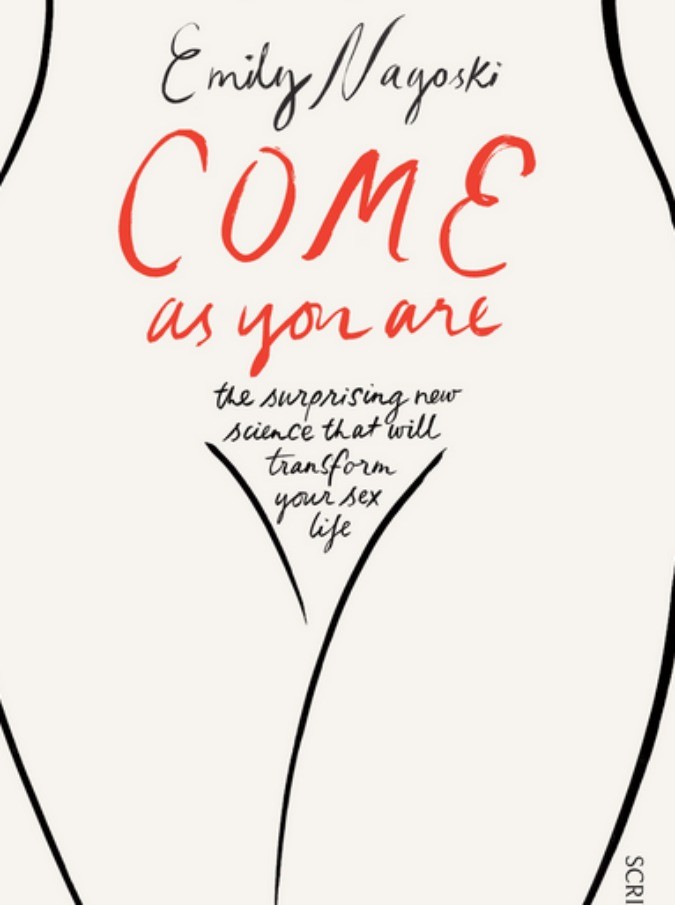 Emily Nagoski
COME
as you are
the surprising new
science that will
transform
your sex
life
SCRI